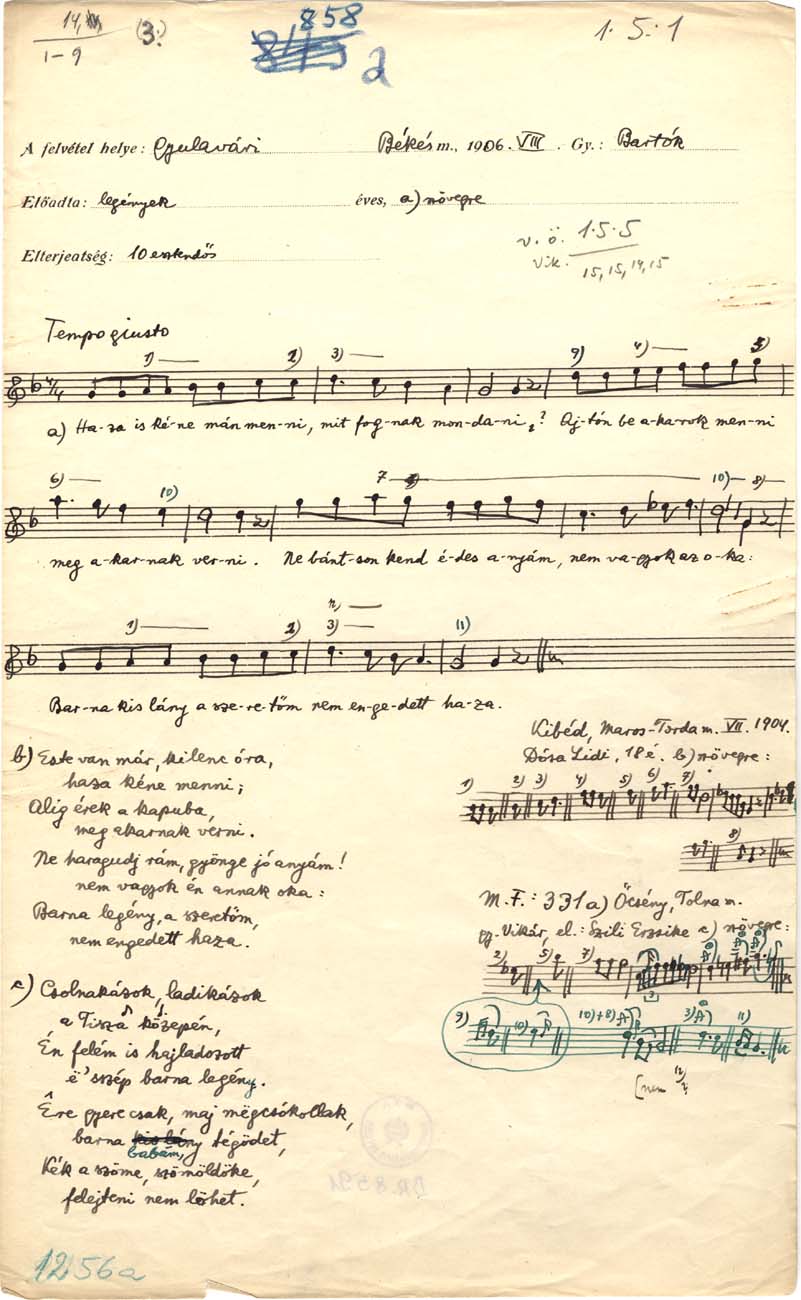 14,
1-9
(3.)
858
2
1.5.1
A felvétel helye: Gyulavári Békés m., 1906. VIII. Gy.: Bartók
Előadta: legények éves, a) szövegre
Elterjeatség: 10 esztendős
v. ö. 1.5.5
Vik. 15, 15, 14, 15
Tempo giusto
1) 2) 3) 9) 4) 5)
4/4
a) Ha-za is ké-ne mán men-ni, mit fog-nak mon-da-ni? Aj-tón be a-ka-rok men-ni
6) 10) 7 10) 8)
meg a-kar-nak ver-ni. Ne bánt-son kend é-des a-nyám, nem va-gyok az o-ka:
1) 2) 3) 11)
Bar-na kis lány a sze-re-tőm nem en-ge-dett ha-za.
Kibéd, Maros-Torda m. VII. 1904.
Dósa Lidi, 18 é. b) szövegre:
1) 2) 3) 4) 5) 6) 7)
8)
b) Este van már, kilenc óra,
haza kéne menni;
Alig érek a kapuba,
meg akarnak verni.
Ne haragudj rám, gyönge jó anyám!
nem vagyok én annak oka:
Barna legény, a szeretőm,
nem engedett haza.
M. F.: 331a) Őcsény, Tolna m.
gy. Vikár, el.: Szili Erzsike c) szövegre:
2) 5) 7)
9) 10) 10)+8) 3) 11)
[nem
c) Csolnakások, ladikások
a Tisza közepén,
Én felém is hajladozott
ë' szép barna legény.
Êre gyere csak, maj mëgcsókollak,
barna babám, tégödet,
Kék a szöme, szömöldöke,
felejteni nem löhet.
1256a